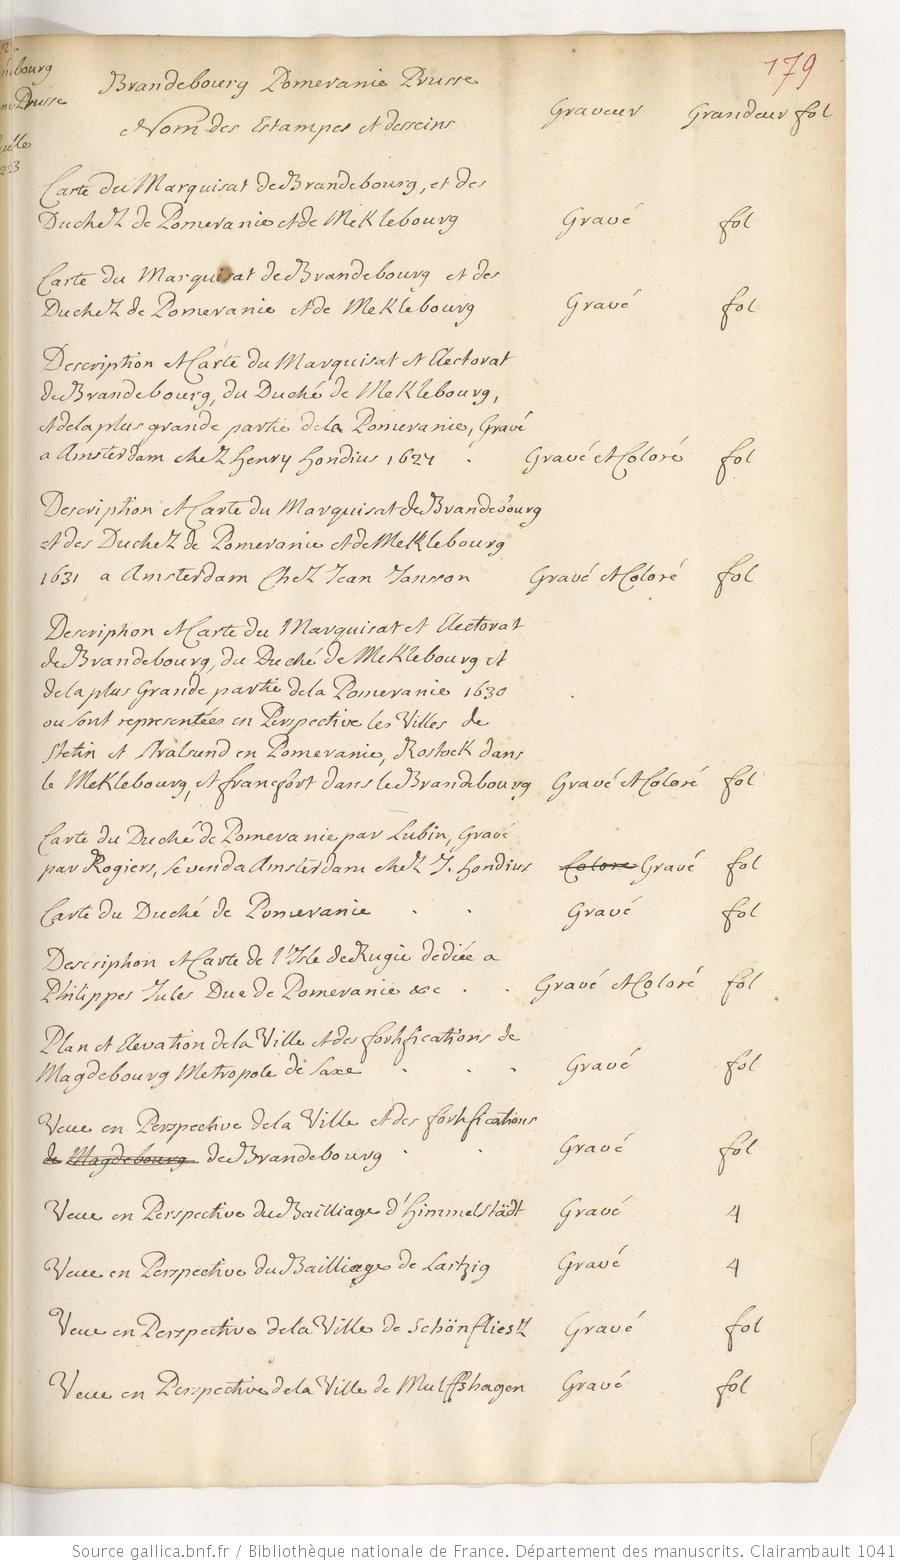 179
Brandebourg Pomeranie Prusse
Nom des Estampes et desseins Graveur Grandeur fol
Carte du Marquisat de Brandebourg, et des
Duchez de Pomeranie et de Meklebourg Gravé fol
Carte du Marquisat de Brandebourg et des
Duchez de Pomeranie et de Meklebourg Gravé fol
Description et Carte du Marquisat et Electorat
de Brandebourg, du Duché de Meklebourg,
et de la plus grande partie de la Pomeranie, Gravé
a Amsterdam chez Henry Hondius 1627 . Gravé et Coloré fol
Description et Carte du Marquisat de Brandebourg
et des Duchez de Pomeranie et de Meklebourg
1631 a Amsterdam Chez Jean Jansson Gravé et Coloré fol
Description et Carte du Marquisat et Electorat
de Brandebourg, du Duché de Meklebourg et
de la plus Grande partie de la Pomeranie 1630
ou sont representées en Perspective les Villes de
Stetin et Stralsund en Pomeranie, Rostock dans
le Meklebourg, et francfort dans le Brandebourg Gravé et Coloré fol
Carte du Duché de Pomeranie par Lubin, Gravé
par Rogiers, se vend a Amsterdam chez J. Hondius Coloré Gravé fol
Carte du Duché de Pomeranie . . Gravé fol
Description et Carte de l'Isle de Rugie dediée a
Philippes Jules Duc de Pomeranie &c . . Gravé et Coloré fol
Plan et Elevation de la Ville et des fortifications de
Magdebourg Metropole de Saxe . . . Gravé fol
Veue en Perspective de la Ville et des fortifications
de Magdebourg de Brandebourg . . Gravé fol
Veue en Perspective du Bailliage d'Himmelstädt Gravé 4
Veue en Perspective du Bailliage de Lartzig Gravé 4
Veue en Perspective de la Ville de Schönfliestz Gravé fol
Veue en Perspective de la Ville de Mulffshagen Gravé fol
Source gallica.bnf.fr / Bibliothèque nationale de France. Département des manuscrits. Clairambault 1041